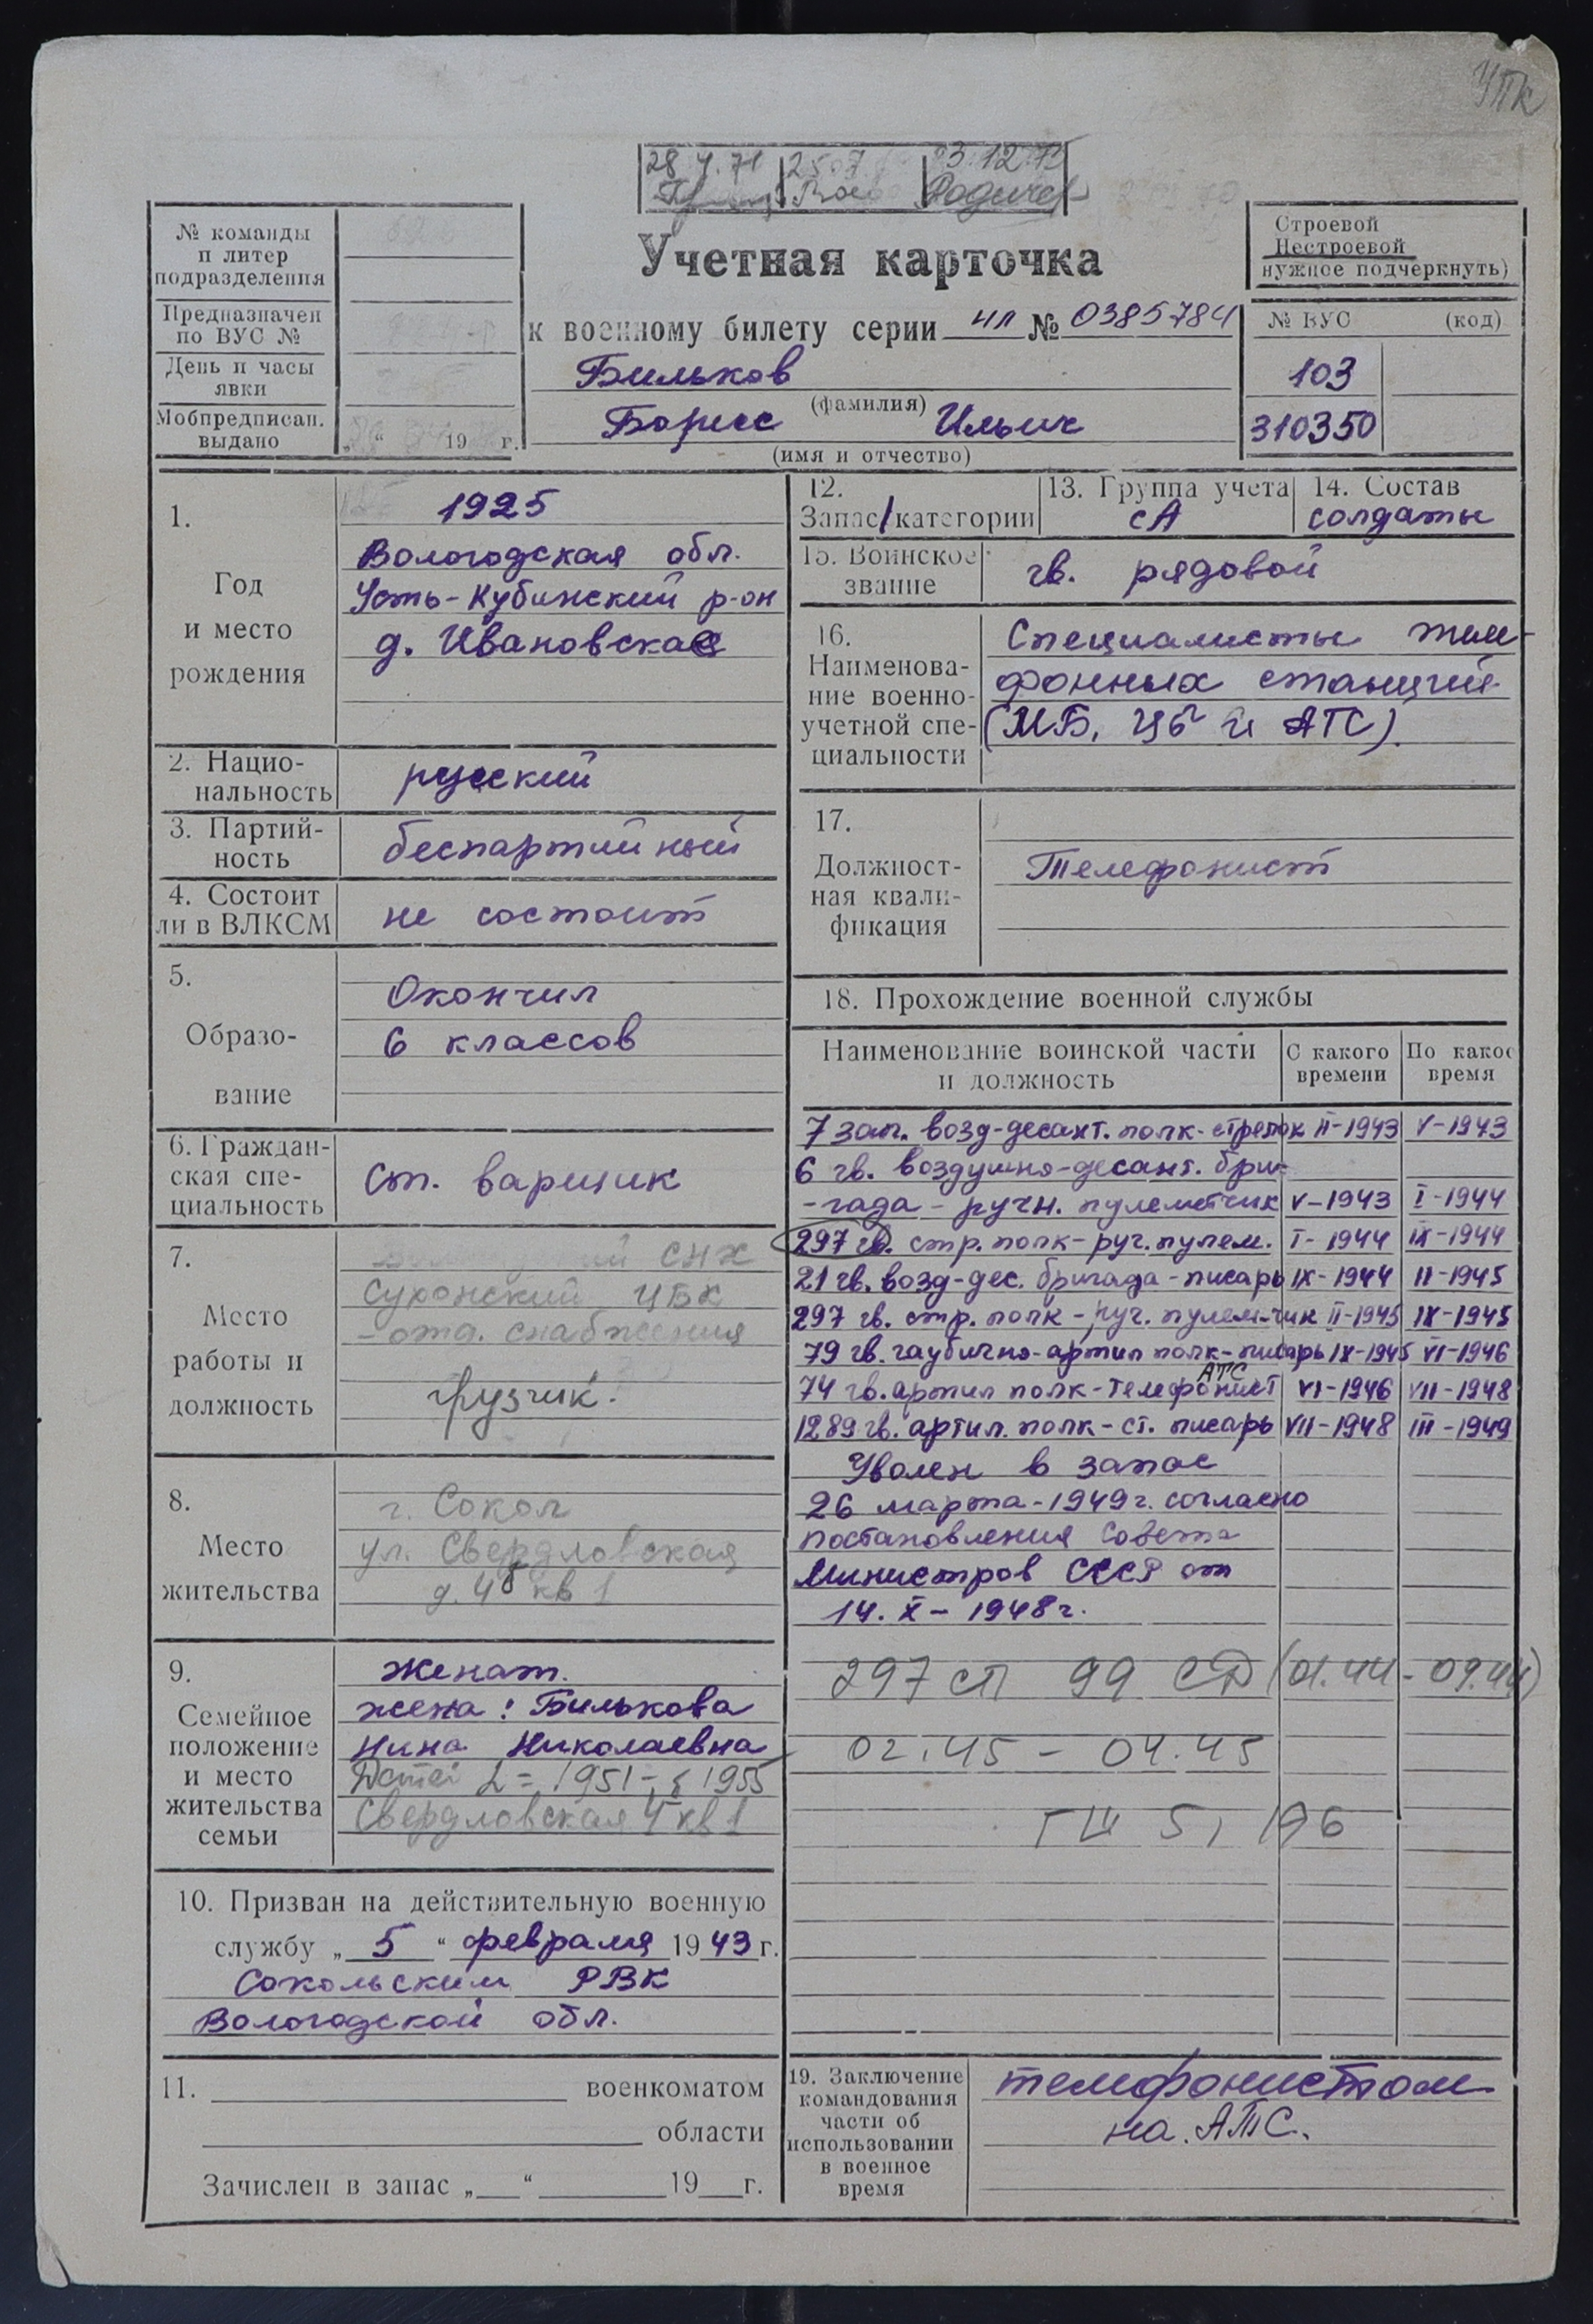 УПК
28.4.71 25.7 3.12.73
Родичев
№ команды
п литер
подразделения
Предназначен
по ВУС №
День и часы
явки
Мобпредписан.
выдано
„ “ 19 г.
Учетная карточка
к военному билету серии ИЛ № 0385784
Бильков
(фамилия)
Борис Ильич
(имя и отчество)
Строевой
Нестроевой
нужное подчеркнуть)
№ ВУС (код)
103
310350
1.
Год
и место
рождения
1925
Вологодская обл.
Усть-Кубинский р-он
д. Ивановская
2. Нацио-
нальность
русский
3. Партий-
ность
беспартийный
4. Состоит
ли в ВЛКСМ
не состоит
5.
Образо-
вание
Окончил
6 классов
6. Граждан-
ская спе-
циальность
ст. варщик
7.
Место
работы и
должность
СНХ
Сухонский ЦБК
отд. снабжения
грузчик.
8.
Место
жительства
г. Сокол
ул. Свердловская
д. 4 кв 1
9.
Семейное
положение
и место
жительства
семьи
Женат.
жена: Билькова
Нина Николаевна
Детей 2 = 1951 - 1955
Свердловская 4 кв 1
10. Призван на действительную военную
службу „ 5 “ февраля 1943 г.
Сокольским РВК
Вологодской обл.
11. военкоматом
области
Зачислен в запас „ “ 19 г.
12.
Запас/категории
13. Группа учета
СА
14. Состав
солдаты
15. Воинское
звание
гв. рядовой
16.
Наименова-
ние военно-
учетной спе-
циальности
Специалисты теле-
фонных станций
(МБ, ЦБ и АТС).
17.
Должност-
ная квали-
фикация
Телефонист
18. Прохождение военной службы
Наименование воинской части
и должность
С какого
времени
По какое
время
7 зап. возд-десант. полк-стрелок II-1943 V-1943
6 гв. воздушно-десант. бри-
-гада - ручн. пулеметчик V-1943 I-1944
297 гв. стр. полк - руч. пулем. I-1944 IX-1944
21 гв. возд-дес. бригада - писарь IX-1944 II-1945
297 гв. стр. полк - руч. пулем-чик II-1945 IX-1945
79 гв. гаубично-артил полк-писарь IX-1945 VI-1946
74 гв. артил полк-телефонист АТС VI-1946 VII-1948
1289 гв. артил. полк - ст. писарь VII-1948 III-1949
Уволен в запас
26 марта-1949г. согласно
постановления Совета
Министров СССР от
14. X - 1948г.
297 сп 99 СД (01.44 - 09.44)
02.45 - 04.45
ГШ 5, 196
19. Заключение
командования
части об
использовании
в военное
время
телефонистом
на. АТС.